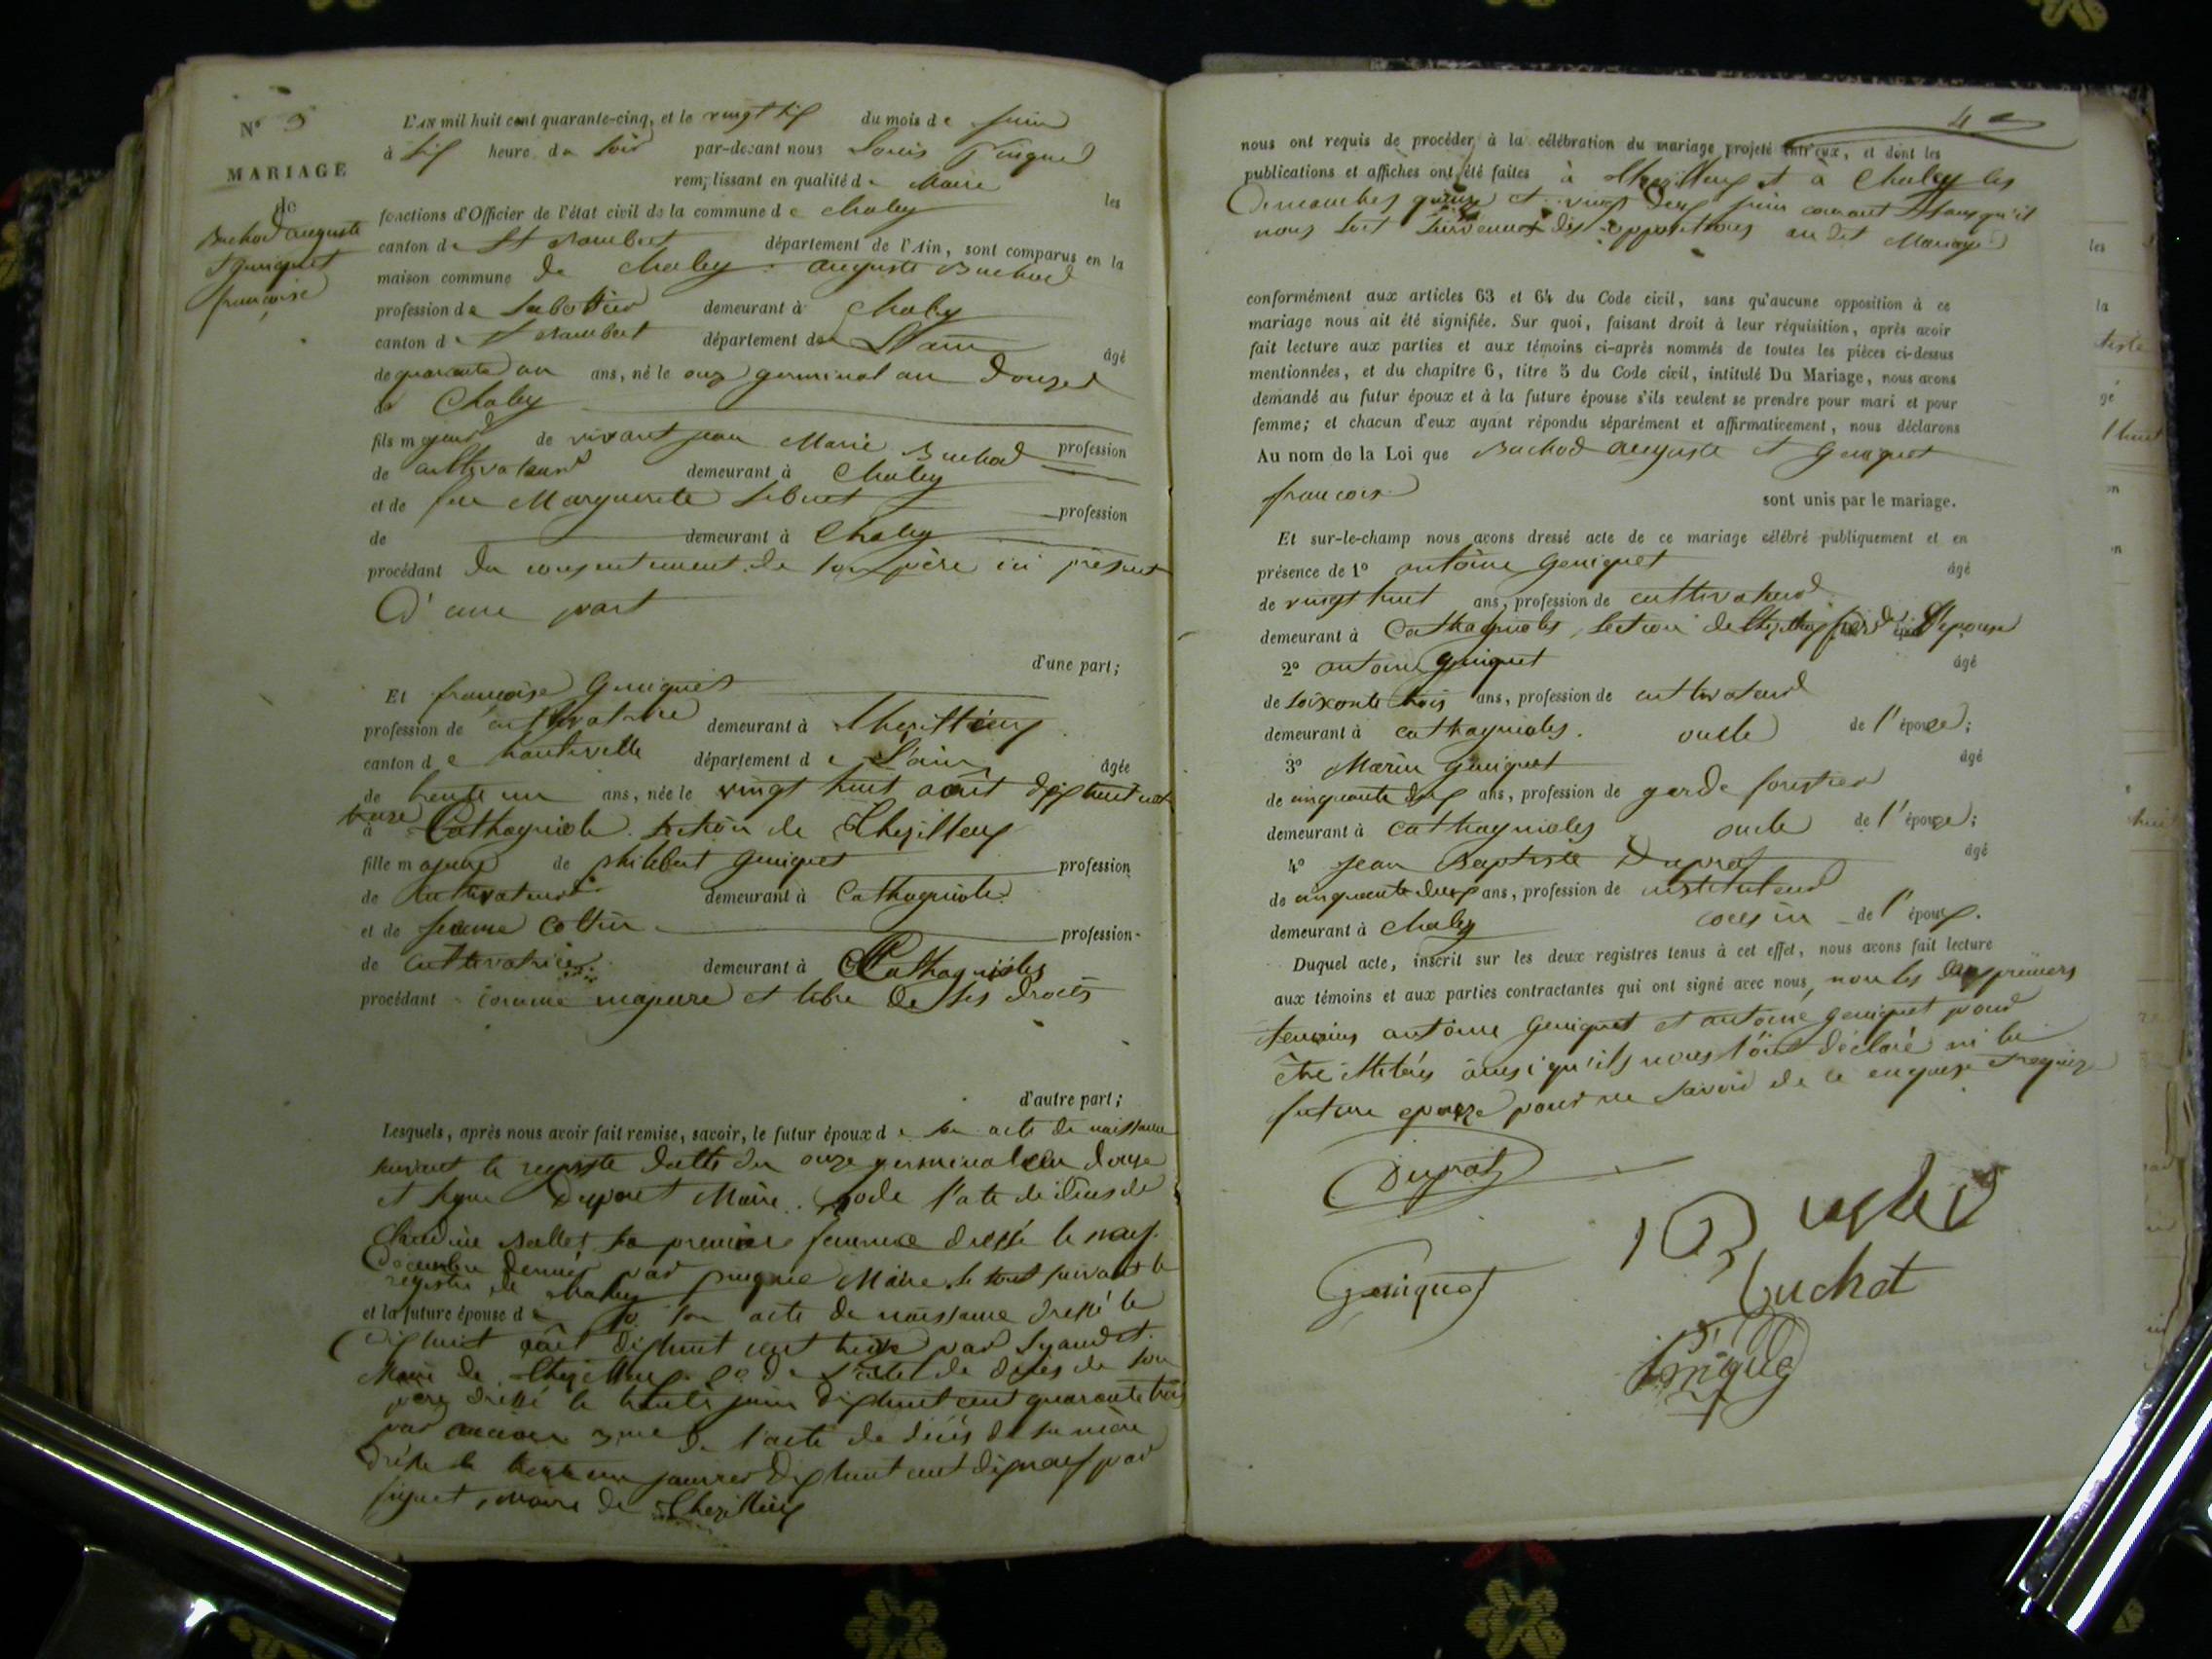 N° 3
MARIAGE
de
Buchod auguste
et geniquet
françoise
L'AN mil huit cent quarante-cinq, et le vingt six du mois de juin
à six heure du soir par-devant nous Louis
remplissant en qualité de Maire les
fonctions d'Officier de l'état civil de la commune de chaley
canton de St Rambert département de l'Ain, sont comparus en la
maison commune de chaley auguste Buchod
profession de Sabotier demeurant à Chaley
canton de St Rambert département de L'ain âgé
de quarante un ans, né le onze germinal an douze
à Chaley
fils majeur de vivant jean Marie Buchod profession
de cultivateur demeurant à Chaley
et de feu Marguerite profession
de demeurant à Chaley
procédant du consentement de son père ici présent
D'une part
d'une part;
Et françoise Geniquet
profession de cultivatrice demeurant à thezillieux
canton de hauteville département de L'ain âgée
de trente un ans, née le vingt huit août dix huit cent
treize
à Cathagniole section de Thezillieux
fille majeure de philibert geniquet profession
de Cultivateur demeurant à Cathagniole
et de jeanne Cottin profession
de cultivatrice demeurant à Cathagnioles
procédant comme majeure et libre de ses droits
d'autre part;
Lesquels, après nous avoir fait remise, savoir, le futur époux de son acte de naissance
suivant le registre datté du onze germinal an douze
et signé Maire. 2o de l'acte de décès de
Claudine sa première femme dressé le neuf
Décembre dernier par Maire le tout suivant le
registre de chaley
et la future épouse de 1o son acte de naissance dressé le
dix huit cent treize par
Maire de Thezillieux 2o de l'acte de décès de son
père dressé le trente juin dix huit cent quarante trois
par 3me de l'acte de décès de sa mère
dressé le trente un janvier dix huit cent dix neuf par
maire de Thezillieux
4
nous ont requis de procéder à la célébration du mariage projeté entr'eux, et dont les
publications et affiches ont été faites à thezillieux et à Chaley les
Dimanches quinze et vingt deux juin courant sans qu'il
nous soit survenu des oppositions au dit Mariage
conformément aux articles 63 et 64 du Code civil, sans qu'aucune opposition à ce
mariage nous ait été signifiée. Sur quoi, faisant droit à leur réquisition, après avoir
fait lecture aux parties et aux témoins ci-après nommés de toutes les pièces ci-dessus
mentionnées, et du chapitre 6, titre 5 du Code civil, intitulé Du Mariage, nous avons
demandé au futur époux et à la future épouse s'ils veulent se prendre pour mari et pour
femme; et chacun d'eux ayant répondu séparément et affirmativement, nous déclarons
Au nom de la Loi que Buchod auguste et Geniquet
françoise sont unis par le mariage.
Et sur-le-champ nous avons dressé acte de ce mariage célébré publiquement et en
présence de 1° antoine geniquet âgé
de vingt huit ans, profession de cultivateur
demeurant à Cathagnioles, section de thezillieux frère de l'épouse
2° antoine geniquet âgé
de soixante trois ans, profession de cultivateur
demeurant à cathagnioles. oncle de l'épouse;
3° Marin geniquet âgé
de cinquante deux ans, profession de garde forestier
demeurant à cathagnioles oncle de l'épouse;
4° jean Baptiste Duprat âgé
de cinquante deux ans, profession de instituteur
demeurant à chaley cousin de l'époux.
Duquel acte, inscrit sur les deux registres tenus à cet effet, nous avons fait lecture
aux témoins et aux parties contractantes qui ont signé avec nous, non les deux premiers
temoins antoine geniquet et antoine geniquet pour
être illiterés ainsi qu'ils nous l'ont déclaré ni la
future epouze pour ne savoir de ce enquise et requize
Duprat
Geniquet
buchot